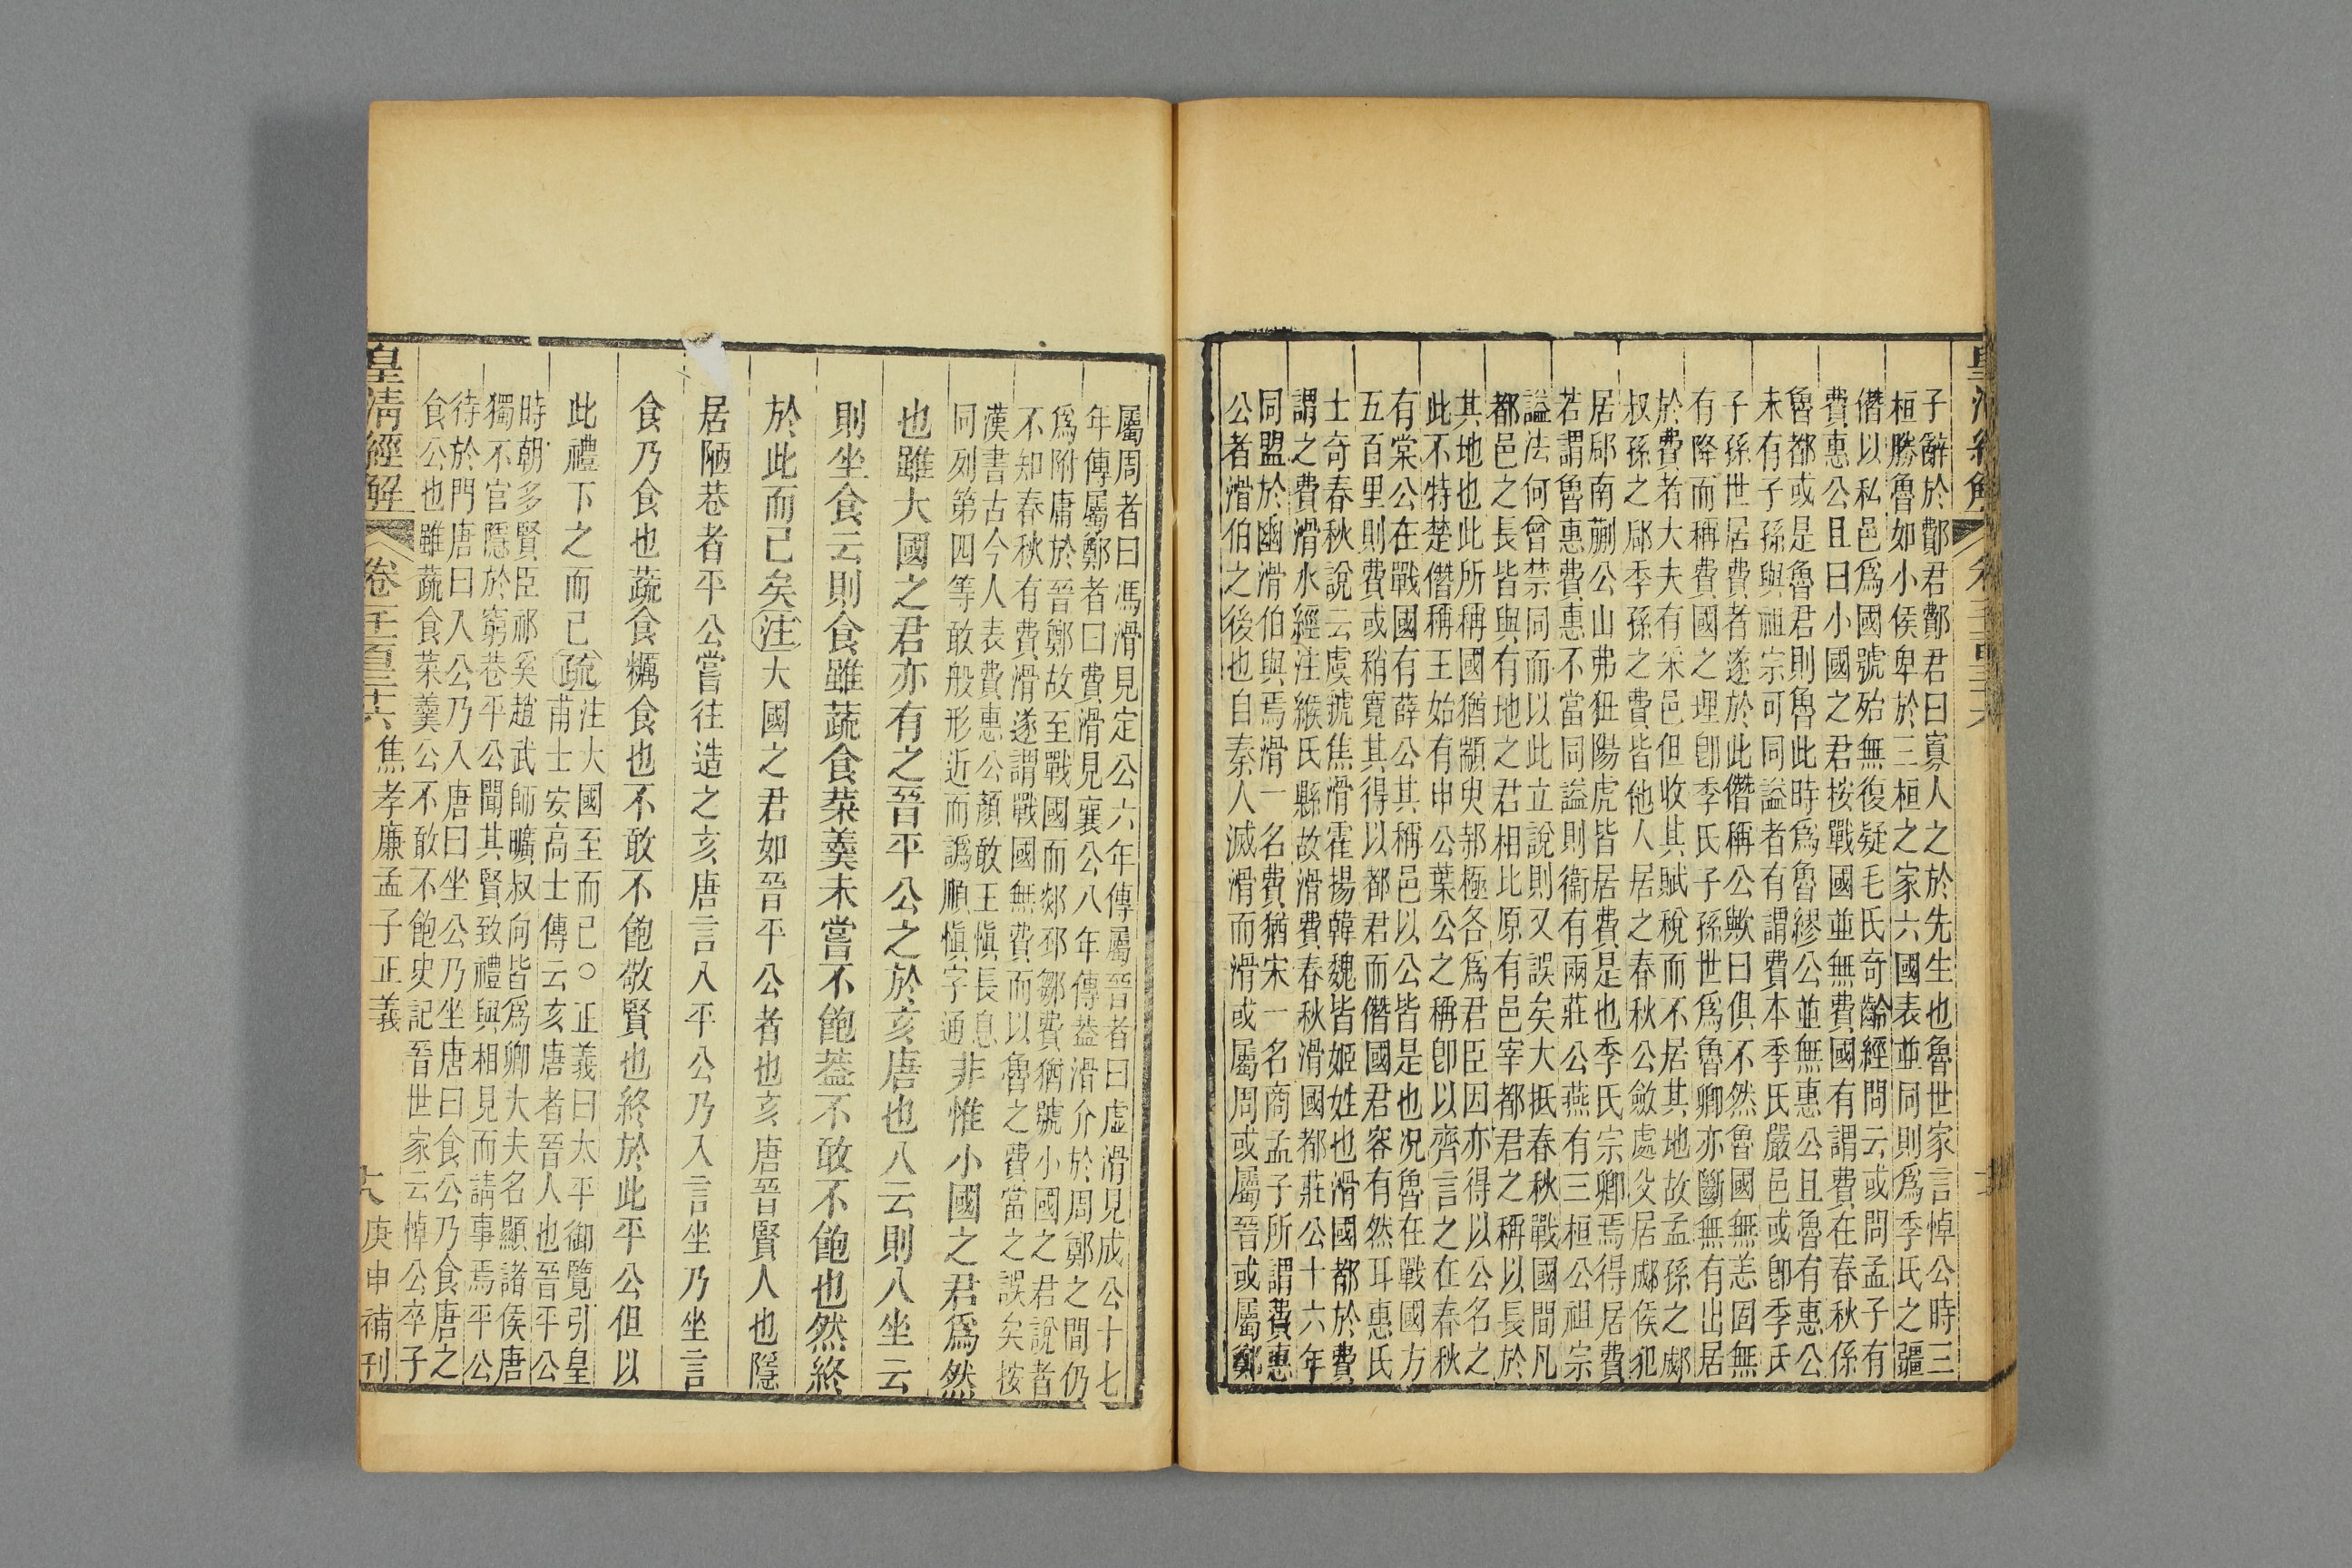 子辭於鄪君鄪君曰寡人之於先生也魯世家言悼公時三
桓勝魯如小侯卑於三桓之家六國表並同則爲季氏之疆
僭以私邑爲國號殆無復疑毛氏奇齡經問云或問孟子有
費惠公且曰小國之君按戰國並無費國有謂費在春秋係
魯都或是魯君則魯此時爲魯繆公並無惠公且魯有惠公
未有子孫與祖宗可同謚者有謂費本季氏嚴邑或卽季氏
子孫世居費者遂於此僭稱公歟曰俱不然魯國無恙固無
有降而稱費國之理卽季氏子孫世爲魯卿亦斷無有出居
於費者大夫有采邑但收其賦稅而不居其地故孟孫之郕
叔孫之郈季孫之費皆他人居之春秋公斂處父居郕侯犯
居郈南蒯公山弗狃陽虎皆居費是也季氏宗卿焉得居費
若謂魯惠費惠不當同謚則衞有兩莊公燕有三桓公祖宗
謚法何曾禁同而以此立說則又誤矣大抵春秋戰國間凡
都邑之長皆與有地之君相比原有邑宰都君之稱以長於
其地也此所稱國猶顓臾郝極各爲君臣因亦得以公名之
此不特楚僭稱王始有申公葉公之稱卽以齊言之在春秋
有棠公在戰國有薛公其稱邑以公皆是也况魯在戰國方
五百里則費或稍寛其得以都君而僭國君容有然耳惠氏
士奇春秋說云虞虢焦滑霍揚韓魏皆姬姓也滑國都於費
謂之費滑水經注緱氏縣故滑費春秋滑國都莊公十六年
同盟於幽滑伯與焉滑一名費猶宋一名商孟子所謂費惠
公者滑伯之後也自秦人滅滑而滑或屬周或屬晉或屬鄭
屬周者曰馮滑見定公六年傳屬晉者曰虛滑見成公十七
年傳屬鄭者曰費滑見襄公八年傳葢滑介於周鄭之間仍
爲附庸於晉鄭故至戰國而郯邳鄒費猶號小國之君說者
不知春秋有費滑遂謂戰國無費而以魯之費當之誤矣按
漢書古今人表費惠公顏敢王愼長息
同列第四等敢般形近而譌順愼字通非惟小國之君爲然
也雖大國之君亦有之晉平公之於亥唐也入云則入坐云
則坐食云則食雖蔬食菜羹未嘗不飽葢不敢不飽也然終
於此而已矣注大國之君如晉平公者也亥唐晉賢人也隱
居陋巷者平公嘗往造之亥唐言入平公乃入言坐乃坐言
食乃食也蔬食糲食也不敢不飽敬賢也終於此平公但以
此禮下之而已疏注大國至而已○正義曰太平御覽引皇
甫士安高士傳云亥唐者晉人也晉平公
時朝多賢臣祁奚趙武師曠叔向皆爲卿大夫名顯諸侯唐
獨不官隱於窮巷平公聞其賢致禮與相見而請事焉平公
待於門唐曰入公乃入唐曰坐公乃坐唐曰食公乃食唐之
食公也雖蔬食菜羹公不敢不飽史記晉世家云悼公卒子
皇清經解 卷千百三十六 焦孝廉孟子正義 六 庚申補刊